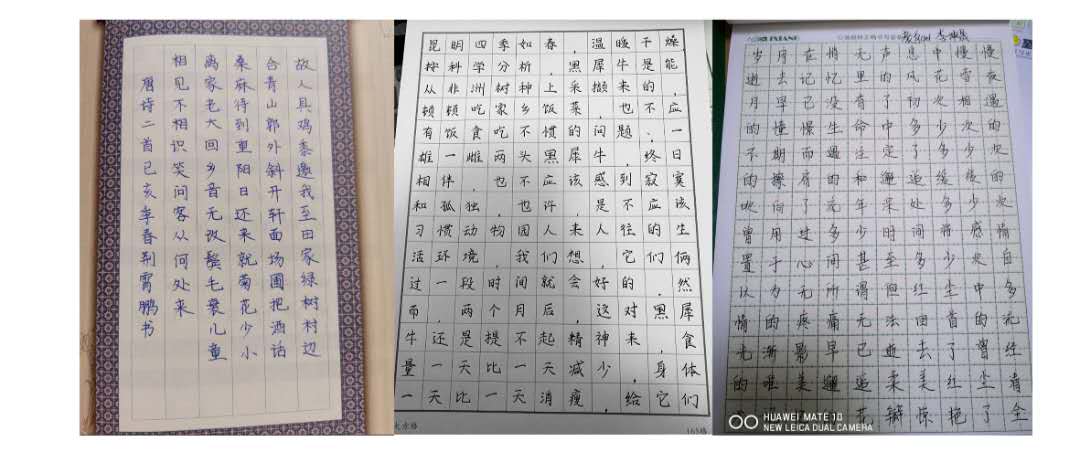 故人具鸡黍邀我至田家绿树村边
合青山郭外斜开轩面场圃把酒话
桑麻待到重阳日还来就菊花少小
离家老大回乡音无改鬓毛衰儿童
相见不相识笑问客从何处来
唐诗二首己亥季春荆霄鹏书
昆明四季如春，温暖干燥
按科学分析，黑犀牛是能
从非洲树种上采撷来的，
顿顿吃家乡饭菜，也不应
有饭食吃不惯的问题、一
雄一雌两头黑犀牛，终日
相伴，也不应该感到寂寞
和孤独，也许，是不应该
习惯动物园人来人往的生
活环境，我们想，它们俩
过一段时间就会好的，然
而，两个月后，这对黑犀
牛还是提不起精神来，食
量一天比一天减少，身体
一天比一天消瘦，给它们
165格
岁月在悄无声息中慢慢
逝去记忆里的风花雪夜
月早已没有了初次相遇
的憧憬生命中多少次的
不期而遇注定了多少次
的擦肩的和邂逅缓缓的
吹向了流年深处多少次
曾用过多少时间将感情
置于心间甚至多少次自
认为无所谓但红尘中多
情的疼痛无法回首的流
光渐影早已逝去了曾经
的唯美邂逅柔美红尘看
花瓣惊艳了全
HUAWEI MATE 10
NEW LEICA DUAL CAMERA